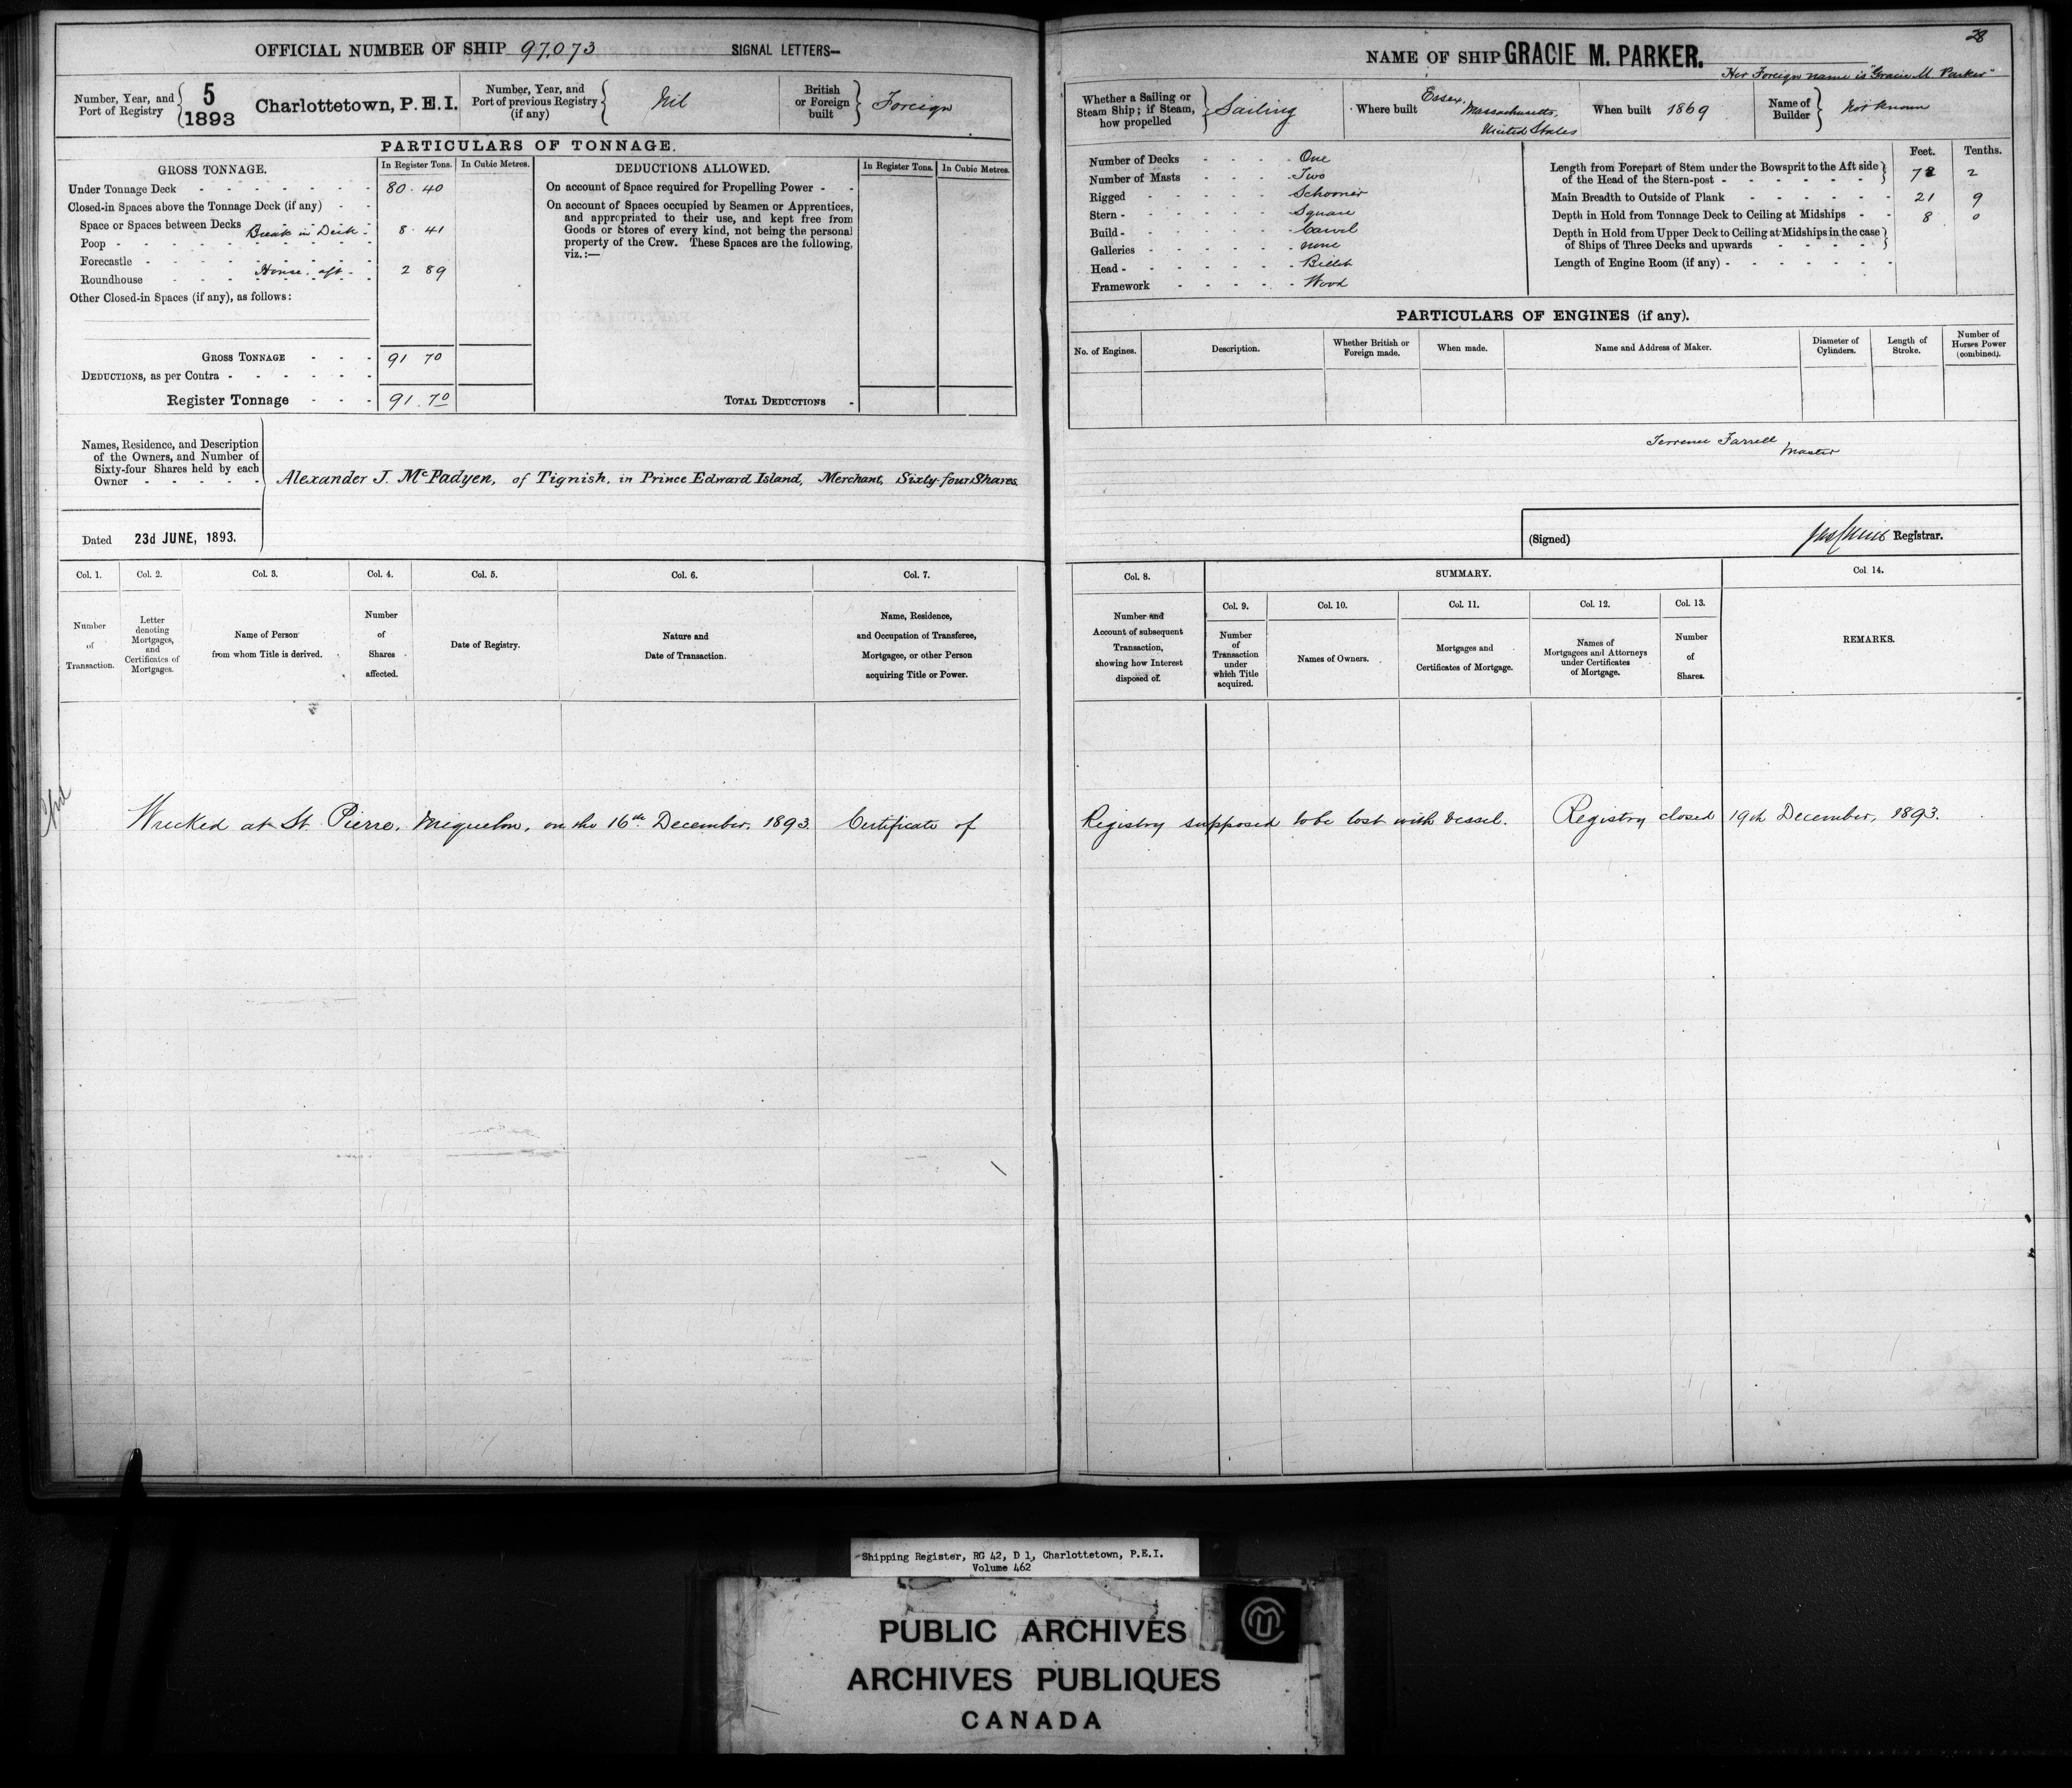 OFFICIAL NUMBER OF SHIP 97,073 SIGNAL LETTERS—
Number, Year, and Port of Registry 5 1893 Charlottetown, P. E. I.
Number, Year, and Port of previous Registry (if any) Nil
British or Foreign built Foreign
PARTICULARS OF TONNAGE.
GROSS TONNAGE. In Register Tons. In Cubic Metres.
Under Tonnage Deck 80.40
Closed-in Spaces above the Tonnage Deck (if any)
Space or Spaces between Decks Break in Deck 8.41
Poop
Forecastle
Roundhouse House aft 2 89
Other Closed-in Spaces (if any), as follows:
GROSS TONNAGE 91 70
DEDUCTIONS, as per Contra
Register Tonnage 91.70
DEDUCTIONS ALLOWED. In Register Tons. In Cubic Metres.
On account of Space required for Propelling Power
On account of Spaces occupied by Seamen or Apprentices,
and appropriated to their use, and kept free from
Goods or Stores of every kind, not being the personal
property of the Crew. These Spaces are the following,
viz.:—
TOTAL DEDUCTIONS
Names, Residence, and Description
of the Owners, and Number of
Sixty-four Shares held by each
Owner
Alexander J. McPadyen, of Tignish, in Prince Edward Island, Merchant, Sixty-four Shares.
Dated 23d JUNE, 1893.
28
NAME OF SHIP GRACIE M. PARKER.
Her Foreign name is "Gracie M. Parker"
Whether a Sailing or Steam Ship; if Steam, how propelled Sailing
Where built Essex, Massachusetts, United States
When built 1869
Name of Builder Not known
Number of Decks One
Number of Masts Two
Rigged Schooner
Stern Square
Build Carvel
Galleries none
Head Billet
Framework Wood
Feet. Tenths.
Length from Forepart of Stem under the Bowsprit to the Aft side
of the Head of the Stern-post 78 2
Main Breadth to Outside of Plank 21 9
Depth in Hold from Tonnage Deck to Ceiling at Midships 8 0
Depth in Hold from Upper Deck to Ceiling at Midships in the case
of Ships of Three Decks and upwards
Length of Engine Room (if any)
PARTICULARS OF ENGINES (if any).
No. of Engines. Description. Whether British or Foreign made. When made. Name and Address of Maker. Diameter of Cylinders. Length of Stroke. Number of Horses Power (combined).
Terrence Farrell
Master
(Signed) Registrar.
Col. 1. Col. 2. Col. 3. Col. 4. Col. 5. Col. 6. Col. 7.
Number of Transaction.
Letter denoting Mortgages, and Certificates of Mortgages.
Name of Person from whom Title is derived.
Number of Shares affected.
Date of Registry.
Nature and Date of Transaction.
Name, Residence, and Occupation of Transferee, Mortgagee, or other Person acquiring Title or Power.
Col. 8. SUMMARY. Col 14.
Col. 9. Col. 10. Col. 11. Col. 12. Col. 13.
Number and Account of subsequent Transaction, showing how Interest disposed of.
Number of Transaction under which Title acquired.
Names of Owners.
Mortgages and Certificates of Mortgage.
Names of Mortgagees and Attorneys under Certificates of Mortgage.
Number of Shares.
REMARKS.
Wrecked at St. Pierre, Miquelon, on the 16th December, 1893. Certificate of Registry supposed to be lost with vessel. Registry closed 19th December, 1893.
Shipping Register, RG 42, D 1, Charlottetown, P.E.I.
Volume 462
PUBLIC ARCHIVES
ARCHIVES PUBLIQUES
CANADA